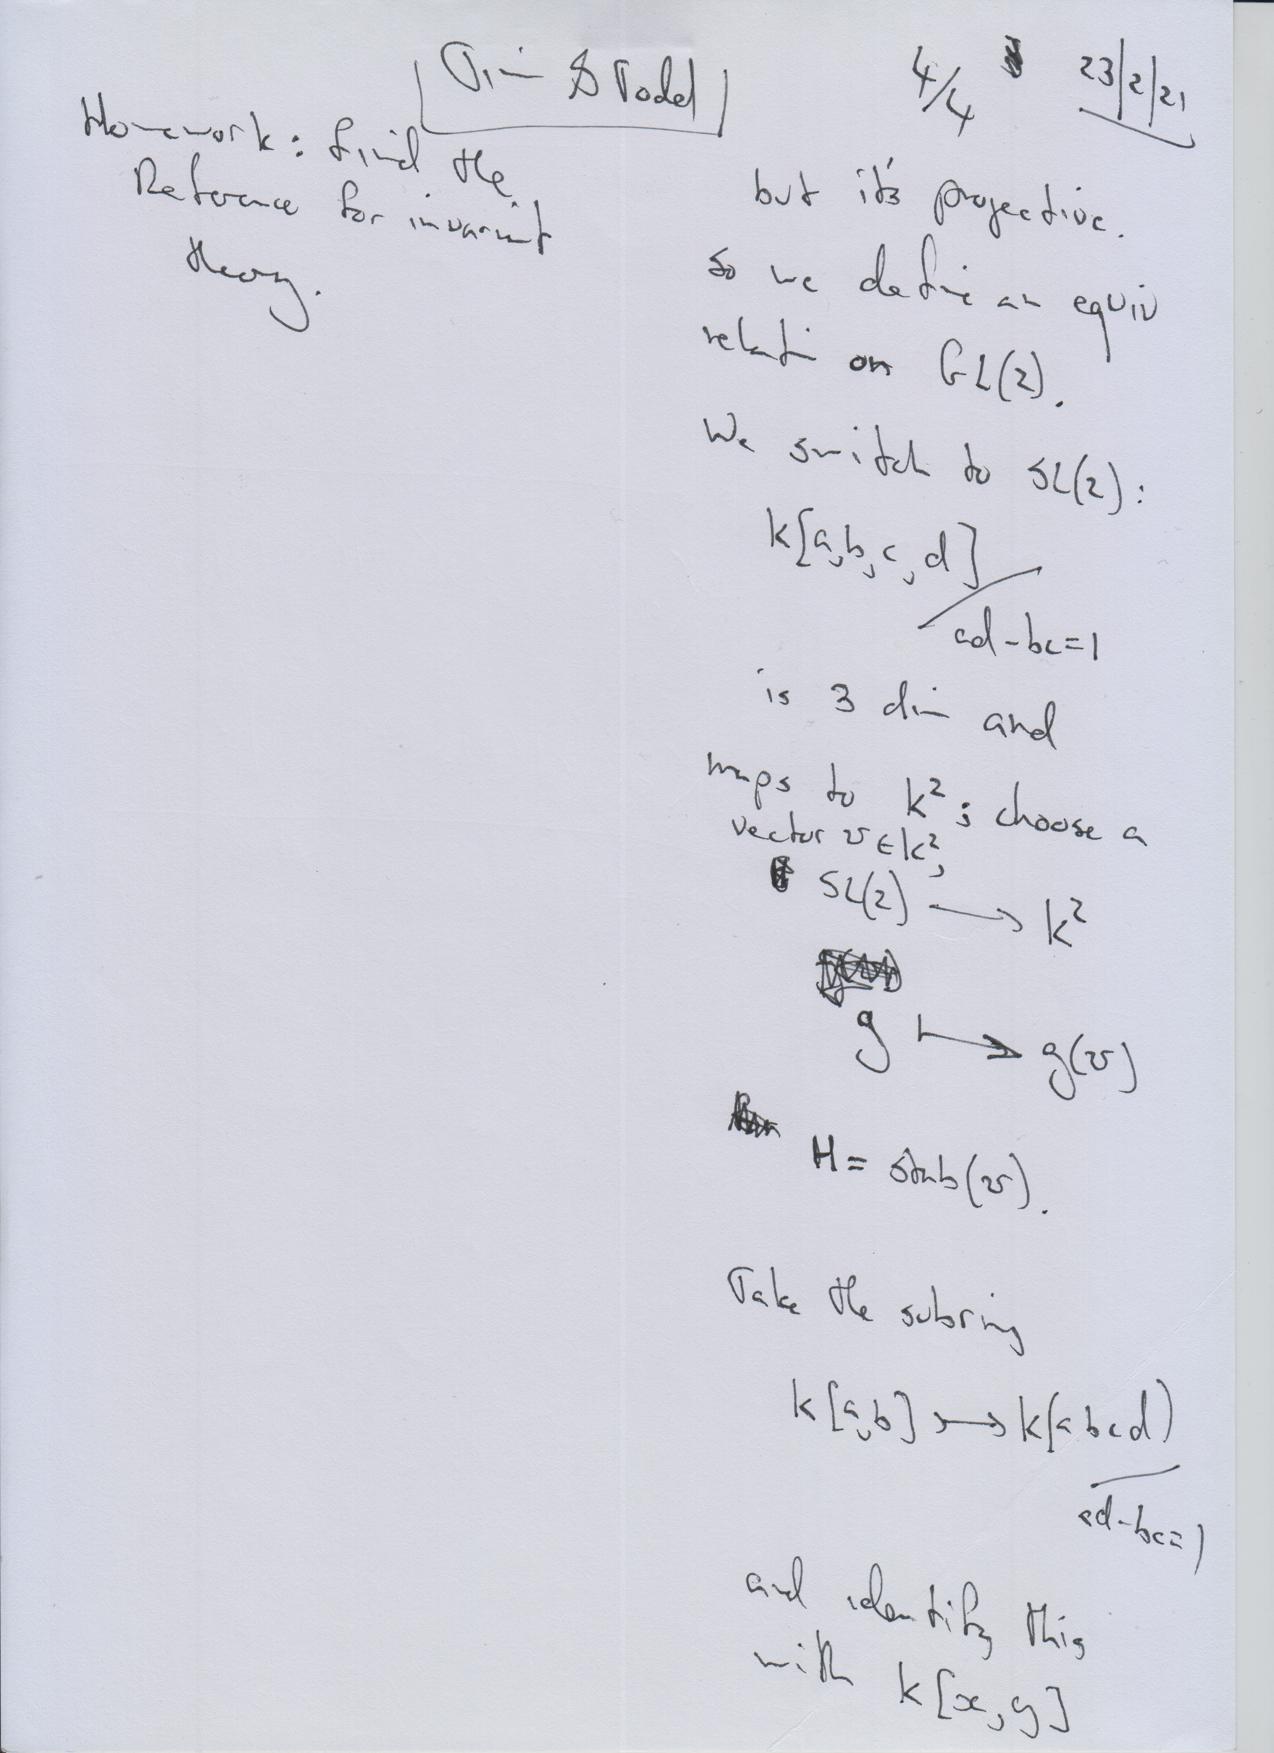 4/4 23/2/21
Homework: find the
Reference for invariant
theory.
but it's projective.
so we define an equiv
relation on GL(2).
We switch to SL(2):
k[a,b,c,d]
ad-bc=1
is 3 dim and
maps to k²; choose a
vector v∈k²,
SL(2) → k²
g ↦ g(v)
H = stab(v).
Take the subring
k[a,b] ↣ k[abcd]
ad-bc=1
and identify this
with k[x,y]